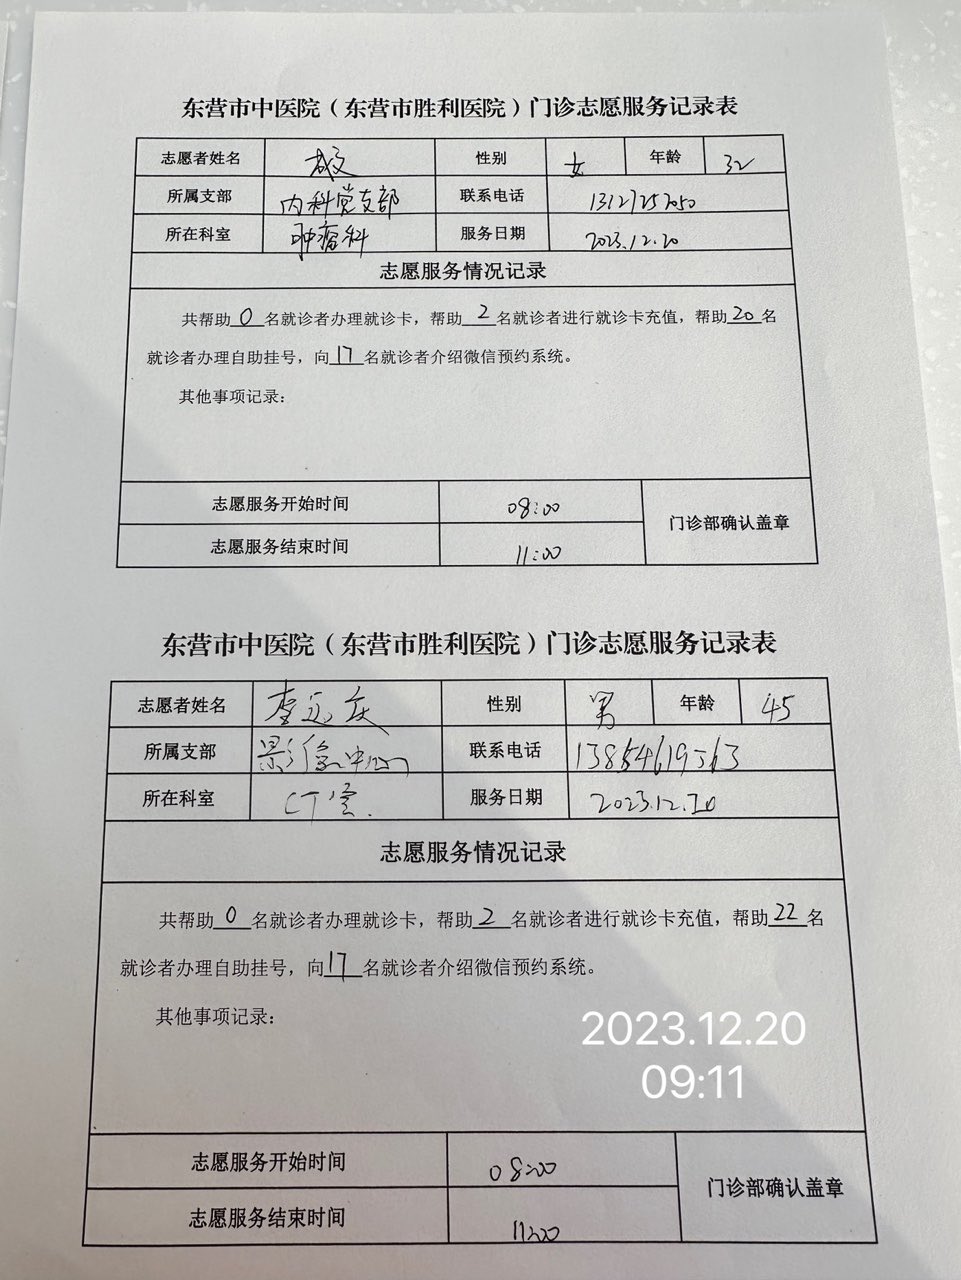 东营市中医院（东营市胜利医院）门诊志愿服务记录表
志愿者姓名 性别 女 年龄 32
所属支部 内科党支部 联系电话
所在科室 肿瘤科 服务日期 2023.12.20
志愿服务情况记录
共帮助0名就诊者办理就诊卡，帮助2名就诊者进行就诊卡充值，帮助20名
就诊者办理自助挂号，向17名就诊者介绍微信预约系统。
其他事项记录：
志愿服务开始时间 08:00
门诊部确认盖章
志愿服务结束时间 11:00
东营市中医院（东营市胜利医院）门诊志愿服务记录表
志愿者姓名 李远庆 性别 男 年龄 45
所属支部 影像中心 联系电话
所在科室 CT室. 服务日期 2023.12.20
志愿服务情况记录
共帮助0名就诊者办理就诊卡，帮助2名就诊者进行就诊卡充值，帮助22名
就诊者办理自助挂号，向17名就诊者介绍微信预约系统。
其他事项记录：
2023.12.20
09:11
志愿服务开始时间 08:00
门诊部确认盖章
志愿服务结束时间 11:00